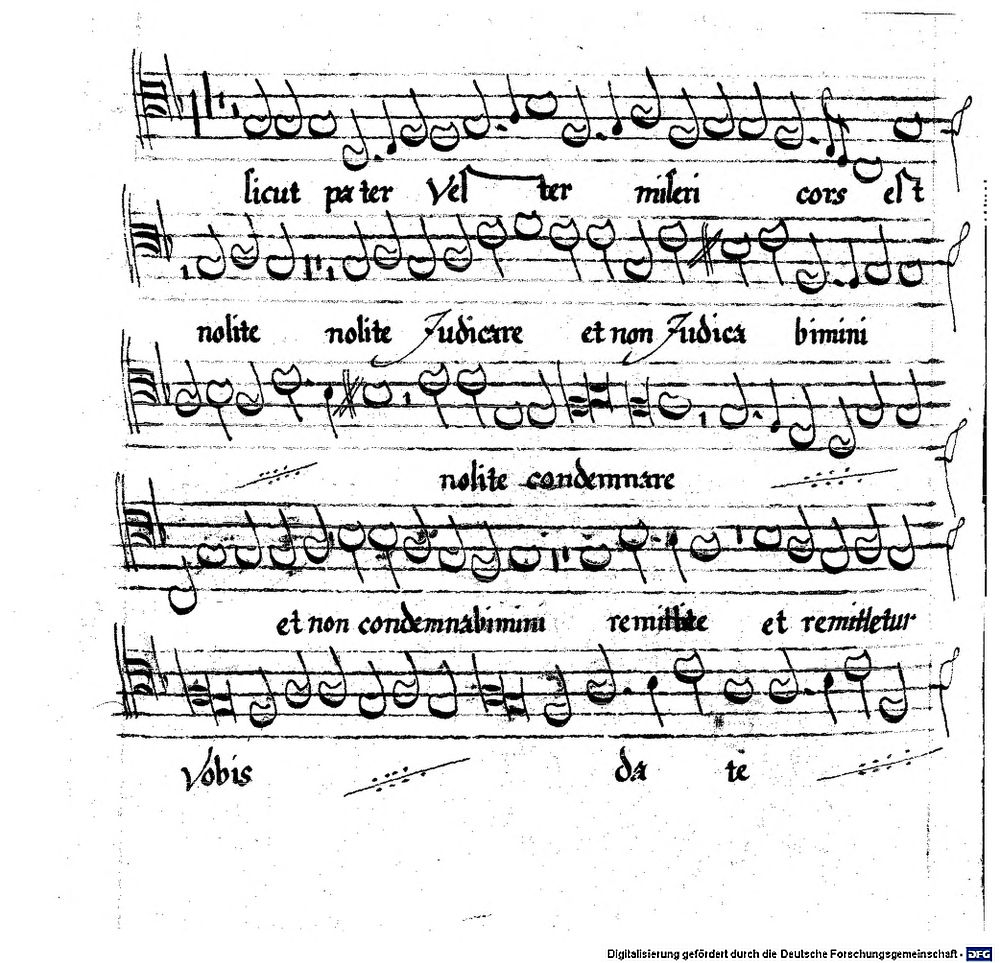 sicut pater Vester miseri cors est
nolite nolite Judicare et non Judica bimini
nolite condemnare
et non condemnabimini remittite et remittetur
Vobis da te
Digitalisierung gefördert durch die Deutsche Forschungsgemeinschaft - DFG